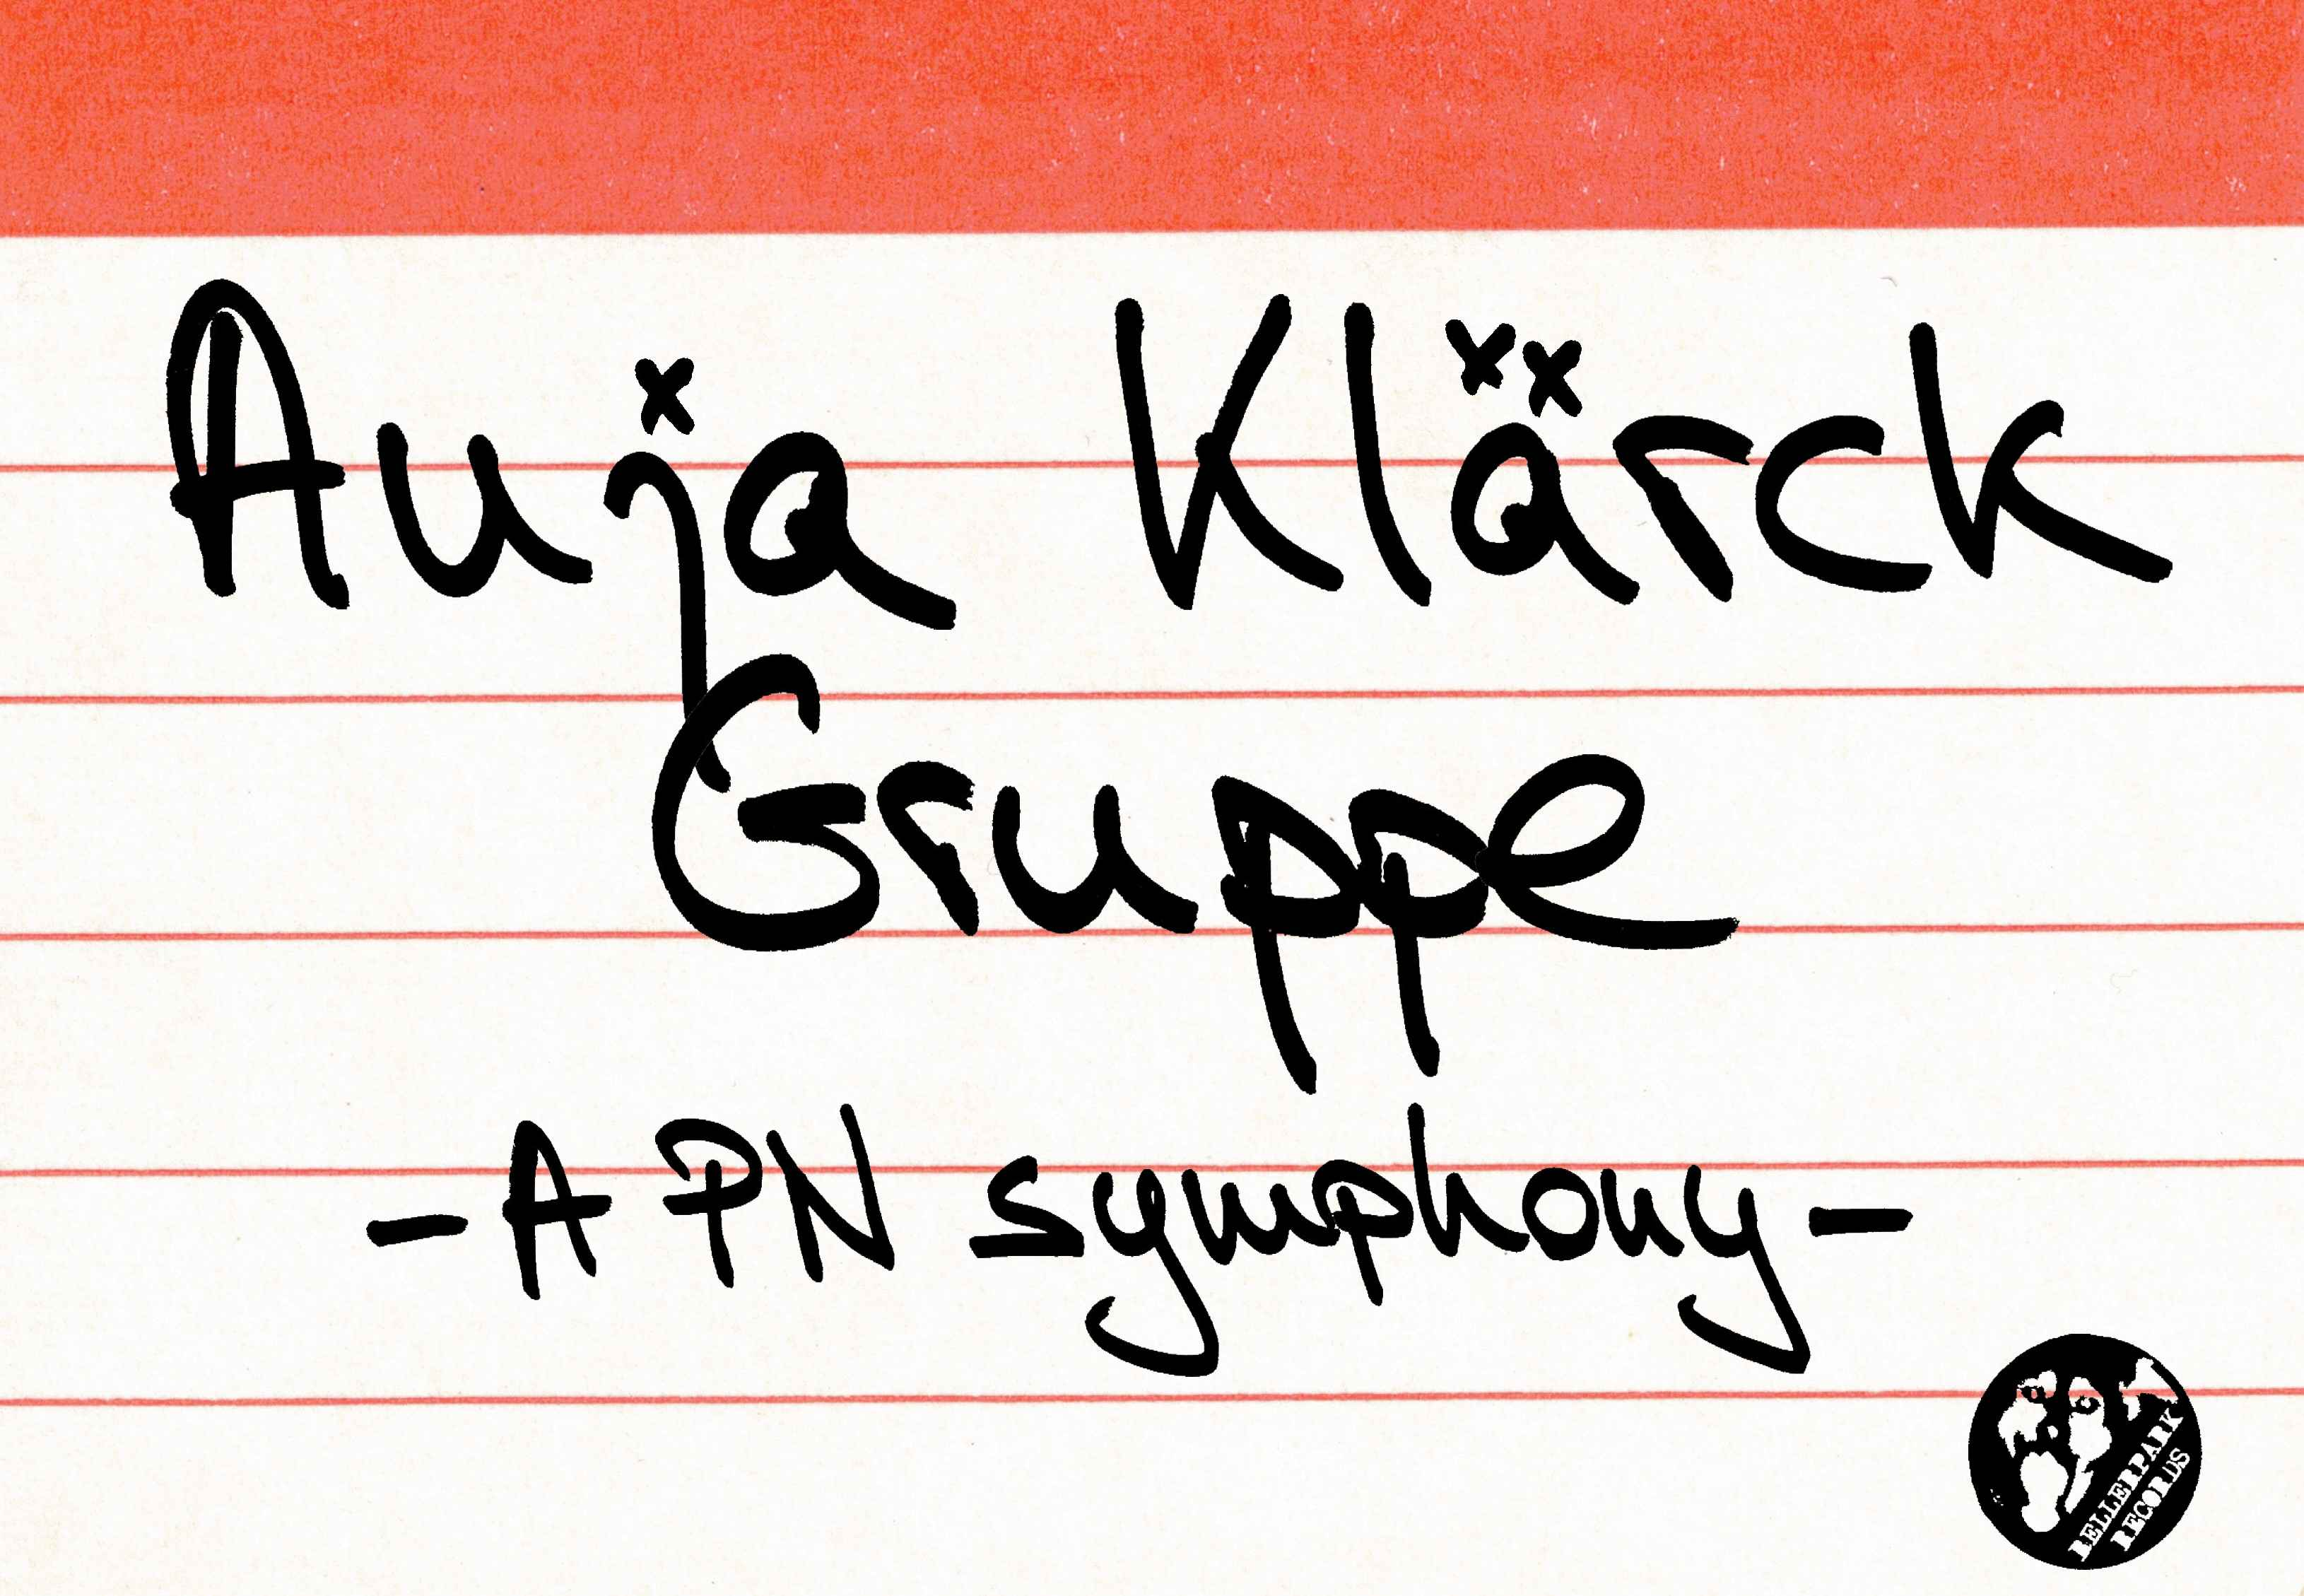 Auja Klärck
Gruppe
- A PN symphony -
BELLERPARK
RECORDS